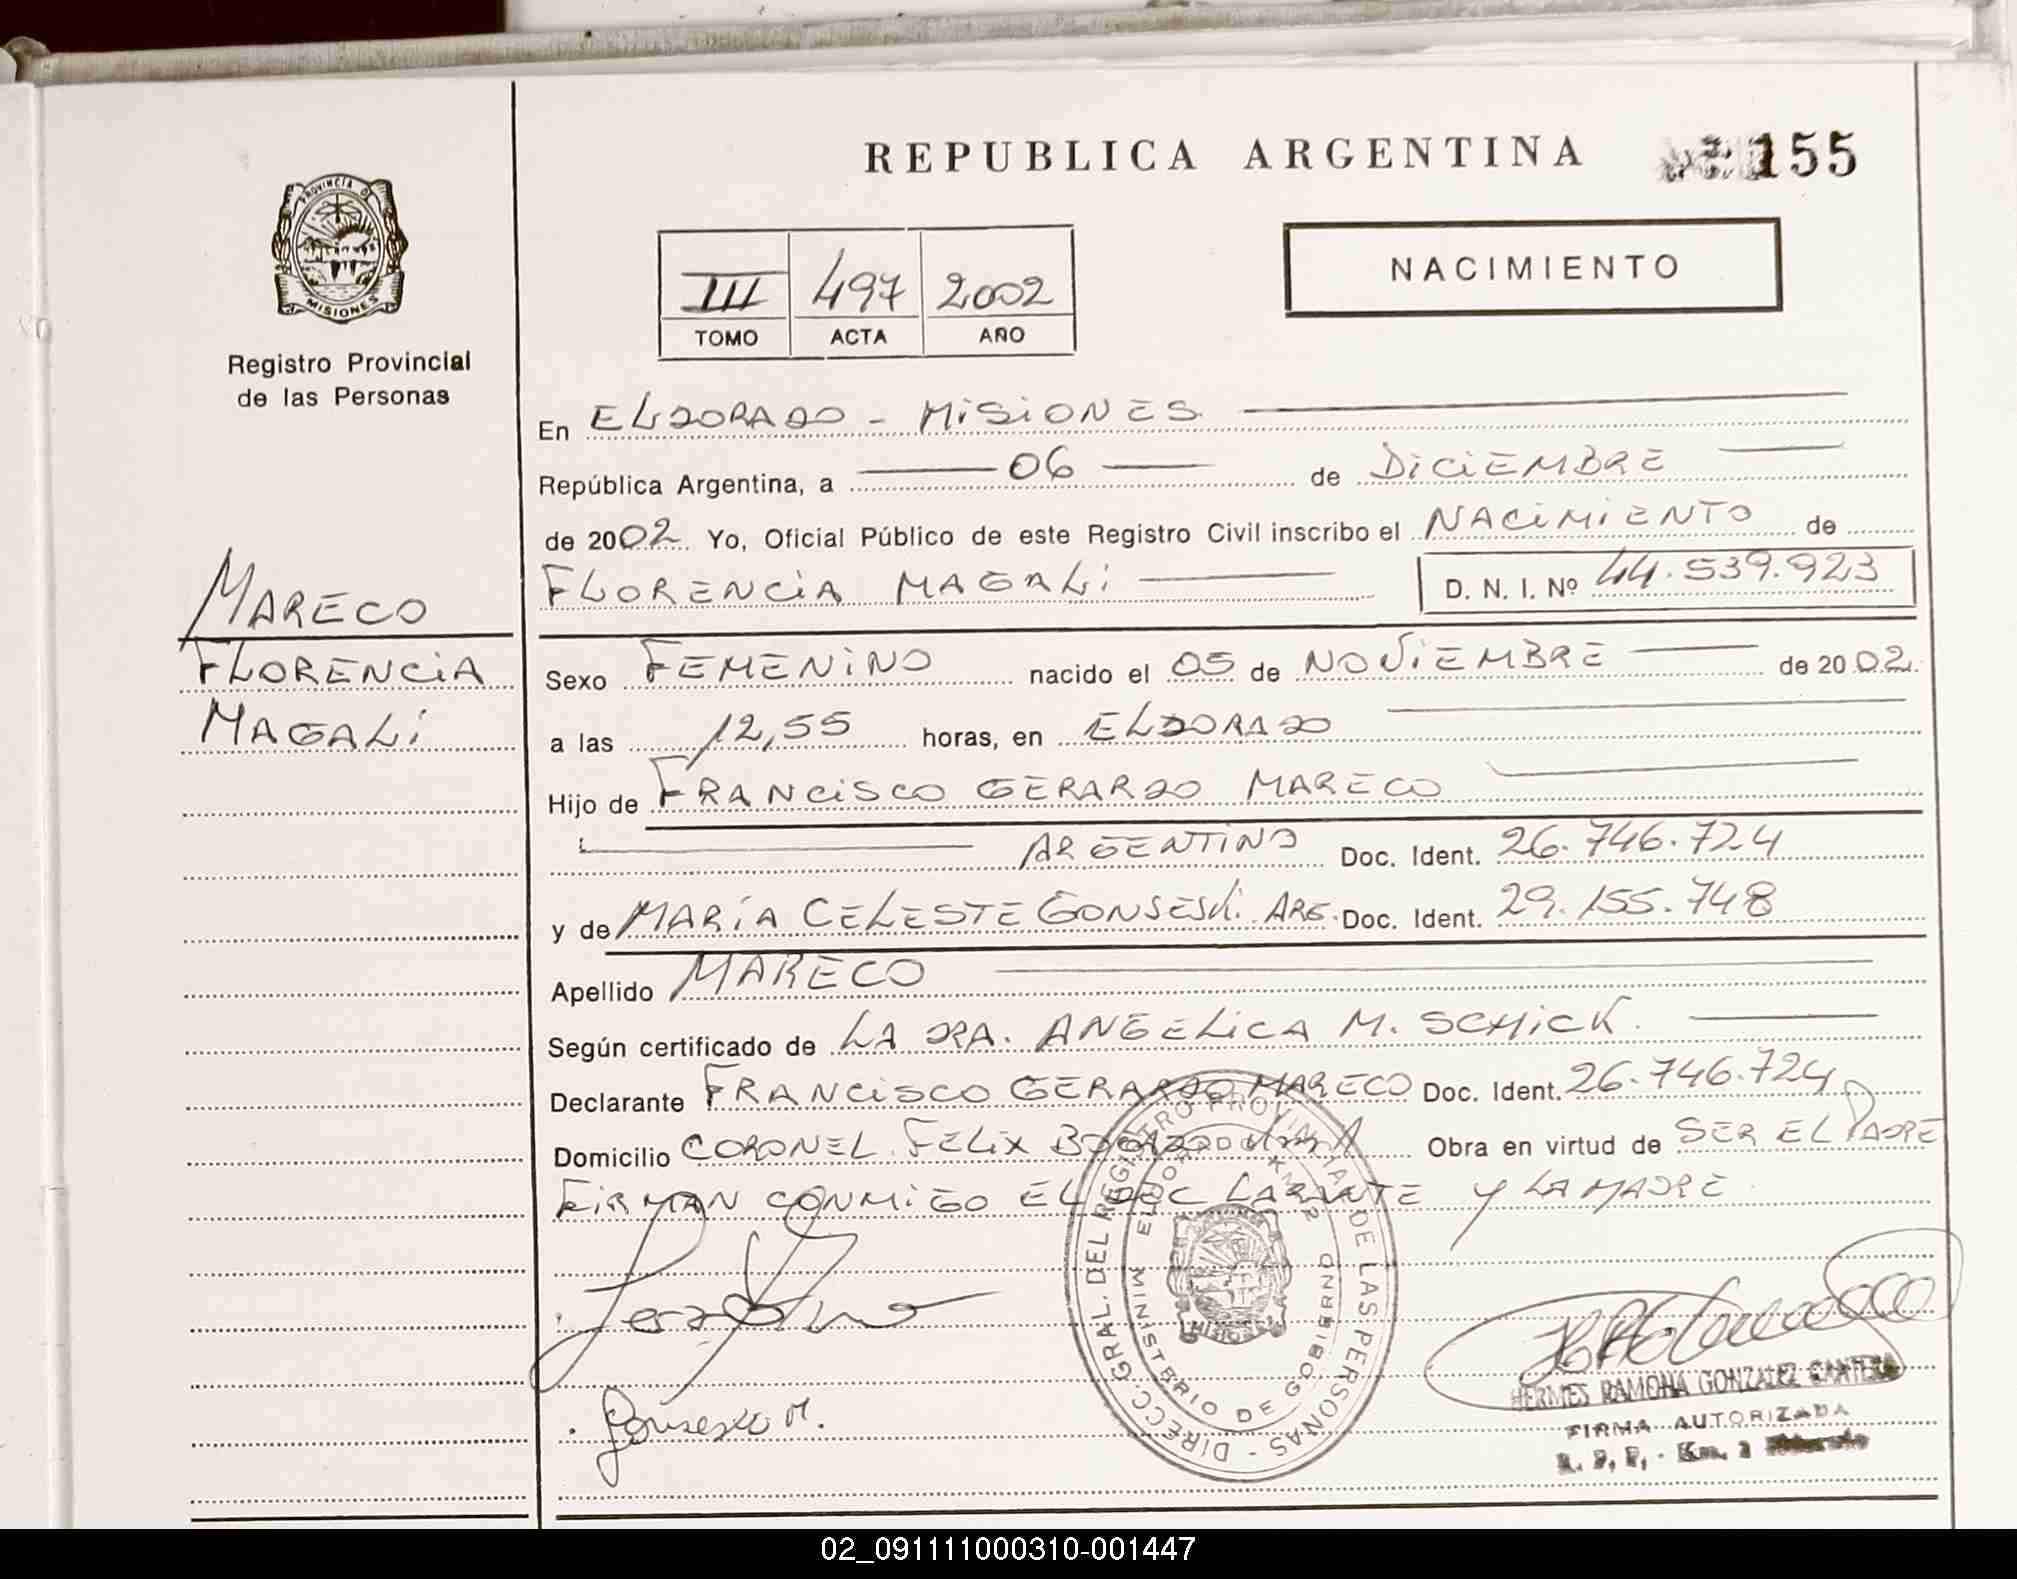 REPUBLICA ARGENTINA 155
PROVINCIA DE
MISIONES
Registro Provincial
de las Personas
III 497 2002
TOMO ACTA AÑO
NACIMIENTO
En ELDORADO - MISIONES
República Argentina, a 06 de DICIEMBRE
de 2002 Yo, Oficial Público de este Registro Civil inscribo el NACIMIENTO de
FLORENCIA MAGALI D. N. I. Nº 44.539.923
MARECO
FLORENCIA
MAGALI
Sexo FEMENINO nacido el 05 de NOVIEMBRE de 2002.
a las 12,55 horas, en ELDORADO
Hijo de FRANCISCO GERARDO MARECO
ARGENTINO Doc. Ident. 26.746.724
y de MARÍA CELESTE ARG. Doc. Ident. 29.155.748
Apellido MARECO
Según certificado de LA DRA. ANGELICA M. SCHICK.
Declarante FRANCISCO GERARDO MARECO Doc. Ident. 26.746.724
Domicilio CORONEL FELIX Obra en virtud de SER EL PADRE
FIRMAN CONMIGO EL DECLARANTE Y LA MADRE
DIRECC. GRAL. DEL REGISTRO PROVINCIAL DE LAS PERSONAS -
MINISTERIO DE GOBIERNO
ELDORADO KM 2
MISIONES
HERMES RAMONA GONZALEZ
FIRMA AUTORIZADA
R. P. P. - Km. 2
02_091111000310-001447